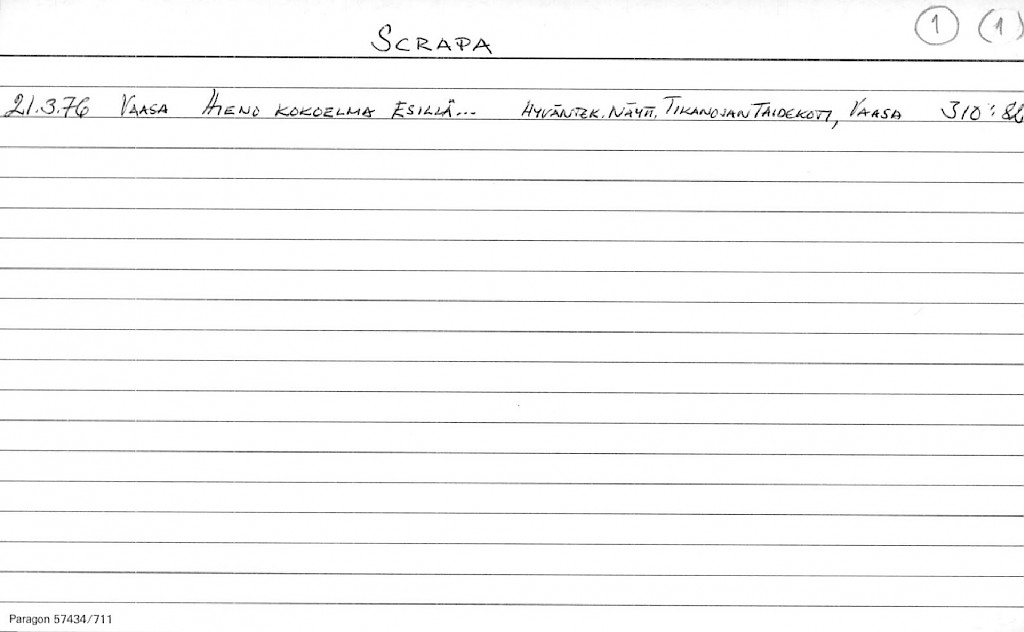 SCRAPA 1 (1)
21.3.76 VAASA HIENO KOKOELMA ESILLÄ... HYVÄNTEK. NÄYTT. TIKANOJAN TAIDEKOTI, VAASA 310:82
Paragon 57434/711